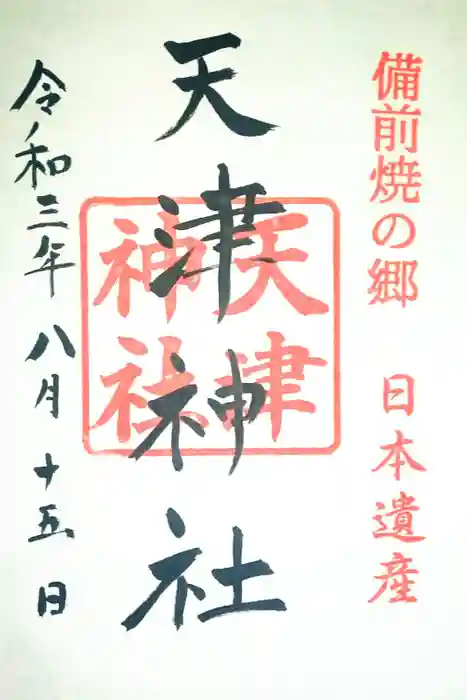 備前焼の郷 日本遺産
天津神社
天津
神社
令和三年 八月 十五日